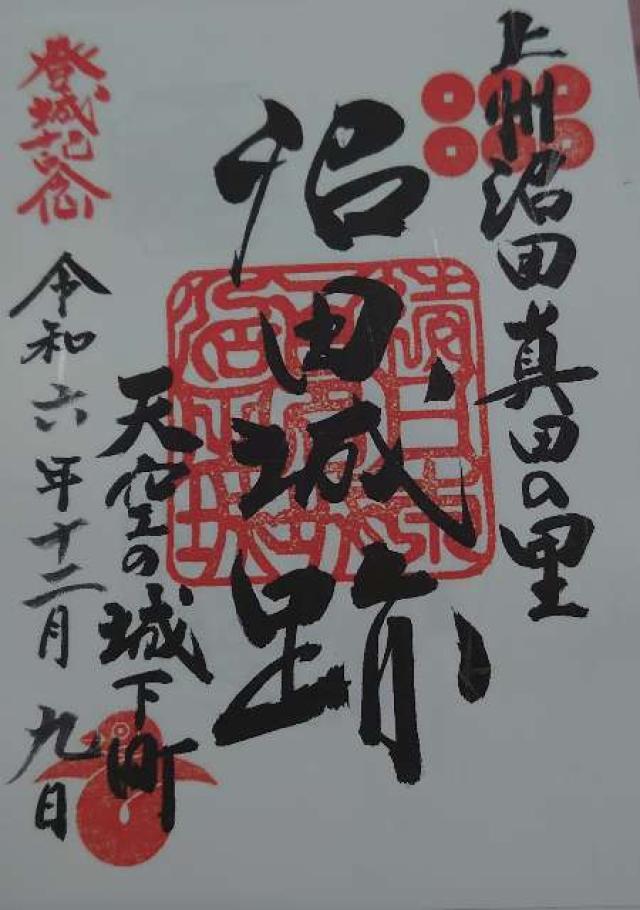 上州沼田真田の里
沼田城跡
天空の城下町
登城記念
令和六年十二月九日